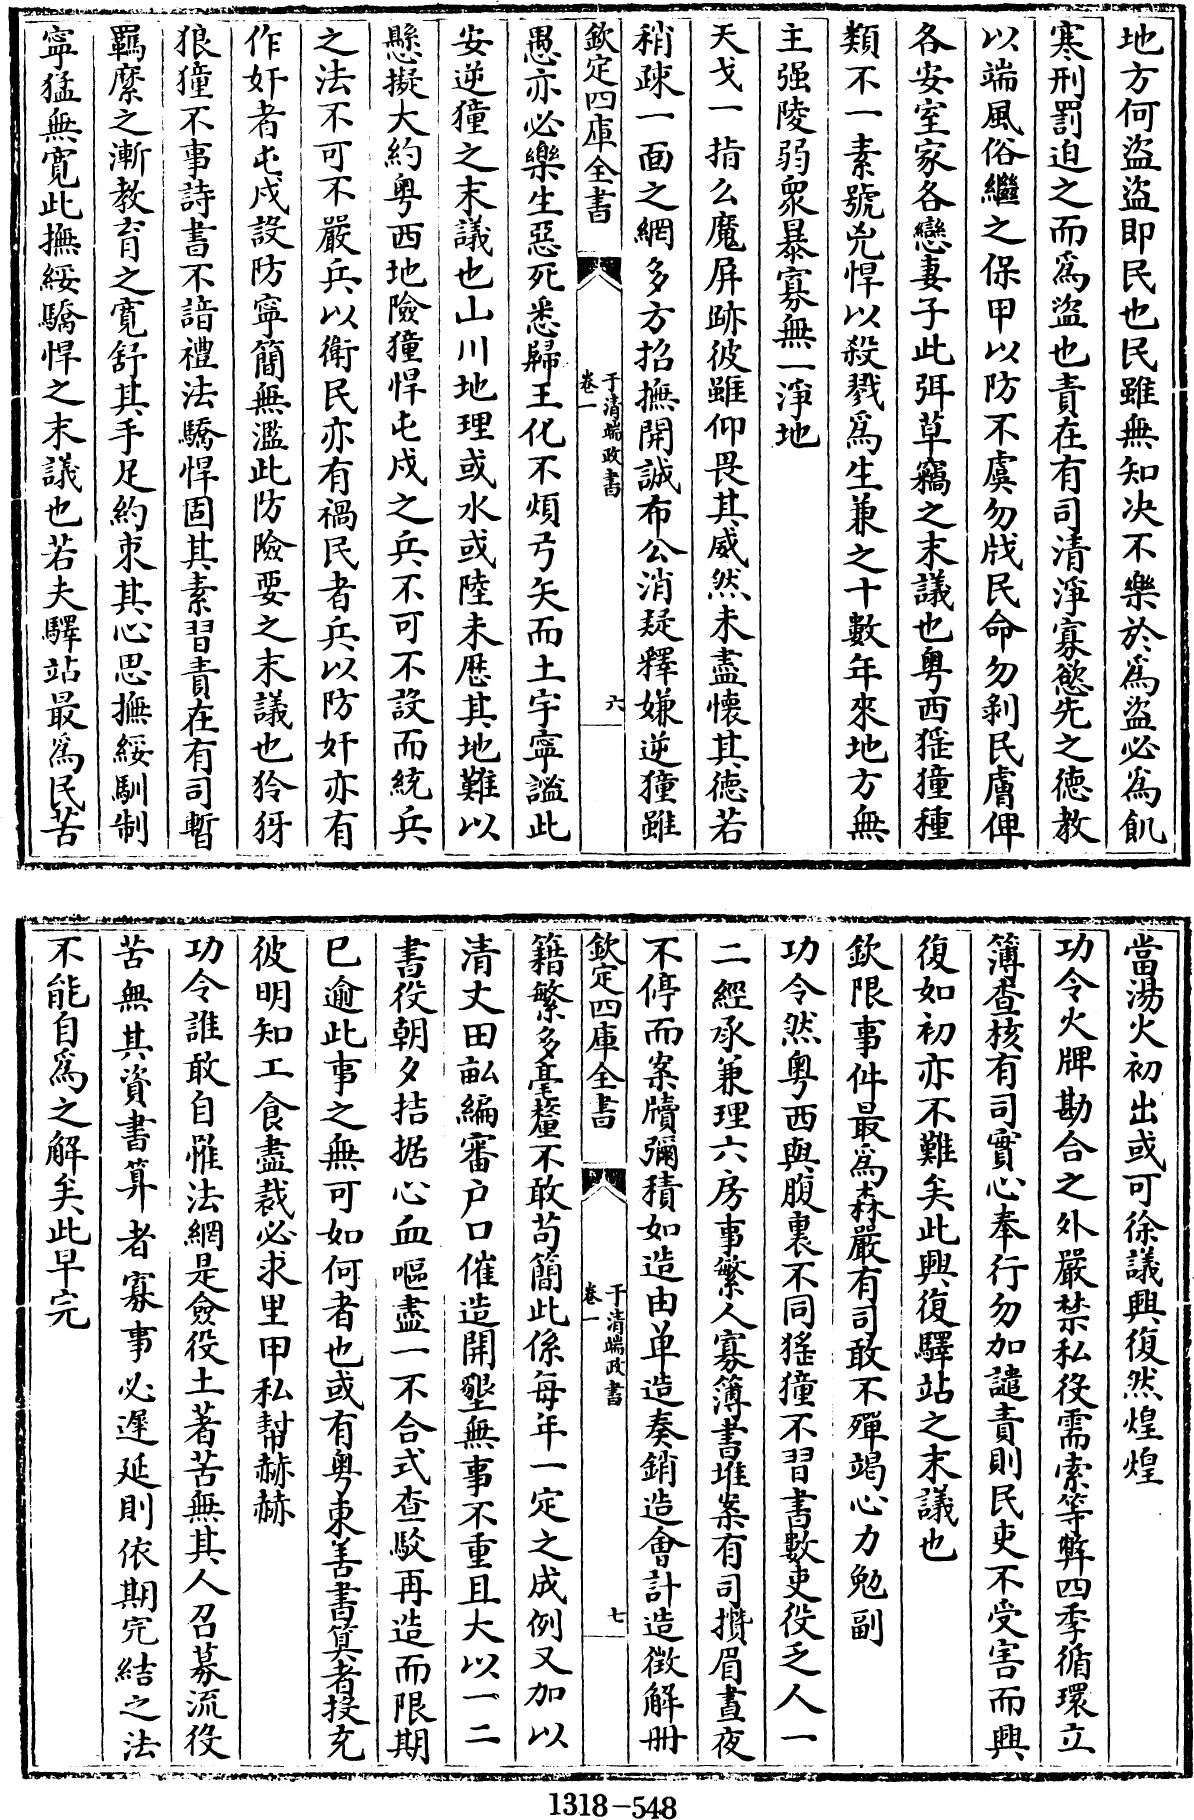 地方何盜盜即民也民雖無知決不樂於為盜必為飢
寒刑罰迫之而為盜也責在有司清淨寡慾先之德教
以端風俗繼之保甲以防不虞勿戕民命勿剝民膚俾
各安室家各戀妻子此弭草竊之末議也粤西猺獞種
類不一素號兇悍以殺戮為生兼之十數年來地方無
主强陵弱衆暴寡無一淨地
天戈一指么魔屏跡彼雖仰畏其威然未盡懷其德若
稍疎一面之網多方招撫開誠布公消疑釋嫌逆獞雖
欽定四庫全書
于清端政書
卷一
六
愚亦必樂生惡死悉歸王化不煩弓矢而土宇寧謐此
安逆獞之末議也山川地理或水或陸未歷其地難以
懸擬大約粤西地險獞悍屯戍之兵不可不設而統兵
之法不可不嚴兵以衛民亦有禍民者兵以防奸亦有
作奸者屯戍設防寧簡無濫此防險要之末議也狑犽
狼獞不事詩書不諳禮法驕悍固其素習責在有司暫
羈縻之漸教育之寛舒其手足約束其心思撫綏馴制
寜猛無寛此撫綏驕悍之末議也若夫驛站最為民苦
當湯火初出或可徐議興復然煌煌
功令火牌勘合之外嚴禁私役需索等弊四季循環立
簿查核有司實心奉行勿加譴責則民吏不受害而興
復如初亦不難矣此興復驛站之末議也
欽限事件最為森嚴有司敢不殫竭心力勉副
功令然粤西與腹裏不同猺獞不習書數吏役乏人一
二經承兼理六房事繁人寡簿書堆案有司攢眉晝夜
不停而案牘彌積如造由单造奏銷造會計造徵解冊
欽定四庫全書
于清端政書
卷一
七
籍繁多毫釐不敢苟簡此係每年一定之成例又加以
清丈田畆編審户口催造開墾無事不重且大以一二
書役朝夕拮据心血嘔盡一不合式查駁再造而限期
已逾此事之無可如何者也或有粤東善書算者投充
彼明知工食盡裁必求里甲私幇赫赫
功令誰敢自罹法網是僉役土著苦無其人召募流役
苦無其資書算者寡事必遲延則依期完結之法
不能自為之解矣此早完
1318-548